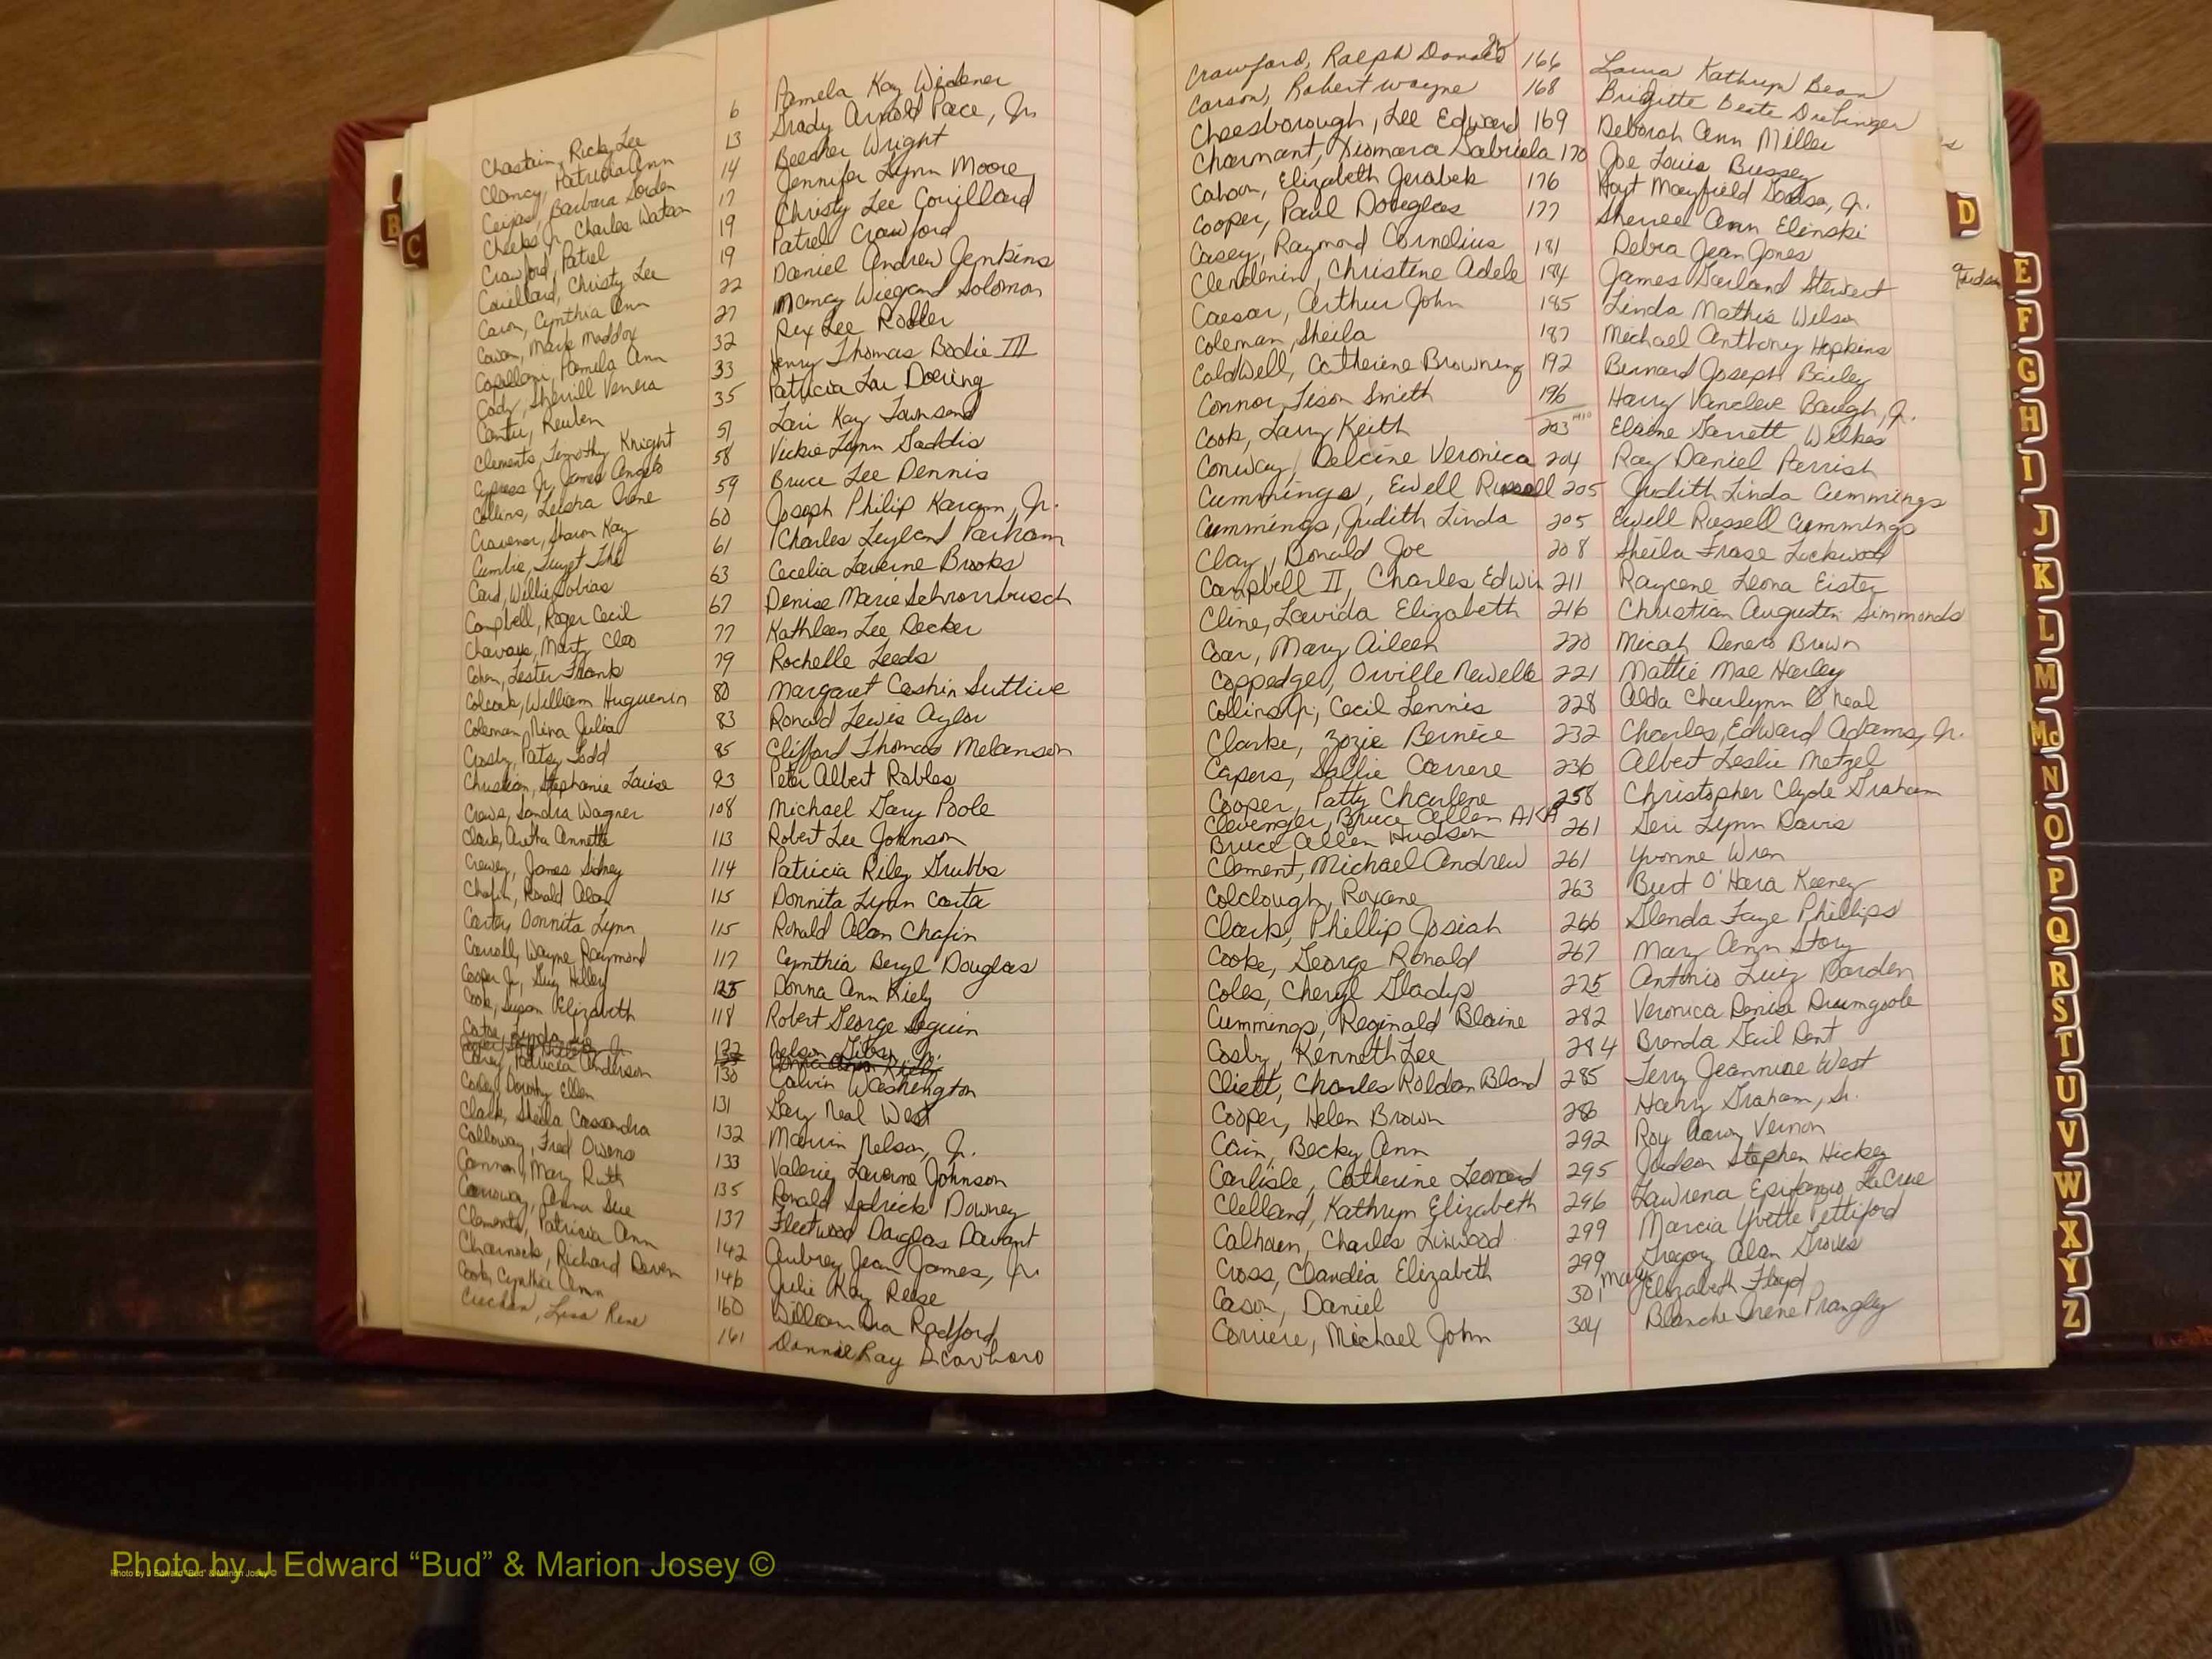 Chastain, Ricky Lee 6 Pamela Kay Widener
Clancy, Patricia Ann 13 Grady Arnold Pace, Jr.
Ceips, Barbara Gorden 14 Beecher Wright
Cheeks Jr., Charles Watson 17 Jennifer Lynn Moore
Crawford, Patrel 19 Christy Lee Couillard
Couillard, Christy Lee 19 Patrel Crawford
Caron, Cynthia Ann 22 Daniel Andrew Jenkins
Cowan, Marie Maddox 27 Nancy Wiegand Solomon
Capellan, Pamela Ann 32 Rex Lee Robler
Cody, Sherrill Venera 33 Henry Thomas Bodie III
Cantu, Reuben 35 Patricia Lou Doering
Clements, Timothy Knight 51 Lori Kay Townsend
Cypress Jr., James Angelo 58 Vickie Lynn Gaddis
Collins, Leisha Irene 59 Bruce Lee Dennis
Cravener, Sharon Kay 60 Joseph Philip Karam, Jr.
Cumbie, Tuyet Thi 61 Charles Leyland Parham
Card, Willie Tobias 63 Cecelia Laverne Brooks
Campbell, Roger Cecil 67 Denise Marie Schrombusch
Chavaye, Marty Cleo 77 Kathleen Lee Decker
Cohen, Lester Frank 79 Rochelle Leeds
Colcock, William Huguenin 80 Margaret Cashin Suttive
Coleman, Nina Julia 83 Ronald Lewis Aylor
Crosby, Patsy Todd 85 Clifford Thomas Melanson
Christian, Stephanie Louise 93 Peter Albert Robles
Crews, Sandra Wagner 108 Michael Gary Poole
Clark, Aretha Annette 113 Robert Lee Johnson
Crewey, James Sidney 114 Patricia Riley Grubbs
Chafin, Ronald Alan 115 Donnita Lynn Carter
Carter, Donnita Lynn 115 Ronald Alan Chafin
Carroll, Wayne Raymond 117 Cynthia Beryl Douglas
Cooper Jr., Guy Hilley 125 Donna Ann Kiely
Cook, Susan Elizabeth 118 Robert George Seguin
Catoe, Linda 132 Nelson
Carey, Patricia Anderson 130 Calvin Washington
Coxley, Dorothy Ellen 131 Gary Neal West
Clark, Sheila Cassandra 132 Marvin Nelson, Jr.
Calloway, Fred Owens 133 Valerie Laverne Johnson
Cannon, Mary Ruth 135 Ronald Sedrick Downey
Carroway, Anna Sue 137 Fleetwood Douglas Davant
Clements, Patricia Ann 142 Aubrey Jean James, Jr.
Charnock, Richard Deven 146 Julie Kay Reese
Cook, Cynthia Ann 160 William Ira Radford
Cuchen, Lisa Rene 161 Donnie Ray Scarboro
Crawford, Ralph Donald 166 Laura Kathryn Bean
Carson, Robert Wayne 168 Brigitte Beate Drebinger
Cheesborough, Lee Edward 169 Deborah Ann Miller
Charmant, Xiomara Gabriela 170 Joe Louis Bussey
Cahoon, Elizabeth Jerabek 176 Hoyt Mayfield Jr.
Cooper, Paul Douglas 177 Sherree Ann Elinski
Casey, Raymond Cornelius 181 Debra Jean Jones
Clendenin, Christine Adele 184 James Garland Stewart
Caesar, Arthur John 185 Linda Mathis Wilson
Coleman, Sheila 187 Michael Anthony Hopkins
Caldwell, Catherine Browning 192 Bernard Joseph Bailey
Connor, Tison Smith 196 Harry Vancleve Baugh, Jr.
Cook, Larry Keith 203 Elaine Garrett Wilkes
Conway, Delcine Veronica 204 Ray Daniel Parrish
Cummings, Ewell Russell 205 Judith Linda Cummings
Cummings, Judith Linda 205 Ewell Russell Cummings
Clay, Donald Joe 208 Sheila Frase Luckwood
Campbell II, Charles Edwin 211 Raycene Leona Eister
Cline, Lavida Elizabeth 216 Christian Augustin Simmonds
Coar, Mary Aileen 220 Micah Denero Brown
Coppedge, Orville Newelle 221 Mattie Mae Harley
Collins Jr., Cecil Lennis 228 Alda Charlynn O'Neal
Clarke, Zozie Bernice 232 Charles, Edward Adams, Jr.
Capers, Sallie Carrere 236 Albert Leslie Metzel
Cooper, Patty Charlene 258 Christopher Clyde Graham
Clevenger, Bruce Allen AKA
Bruce Allen Hudson 261 Geri Lynn Davis
Clement, Michael Andrew 261 Yvonne Wren
Colclough, Roxane 263 Burt O'Hara Keeney
Clark, Phillip Josiah 266 Glenda Faye Phillips
Cooke, George Ronald 267 Mary Ann Story
Coles, Cheryl Gladys 275 Antonio Luiz Darden
Cummings, Reginald Blaine 282 Veronica Denise Drumgoole
Cosby, Kenneth Lee 284 Brenda Gail Dent
Cliett, Charles Roldan Bland 285 Terry Jeannine West
Cooper, Helen Brown 286 Harry Graham, Sr.
Cain, Becky Ann 292 Roy Aaron Vernon
Carlisle, Catherine Leonard 295 Judson Stephen Hickey
Clelland, Kathryn Elizabeth 296 Lawrena Epifanio LaCrue
Calhoun, Charles Linwood 299 Marcia Yvette Pettiford
Cross, Claudia Elizabeth 299 Gregory Alan Groves
Cason, Daniel 301 Mary Elizabeth Floyd
Corriere, Michael John 304 Blanche Irene Prangley
B
C
D
E
F
G
H
I
J
K
L
M
Mc
N
O
P
Q
R
S
T
U
V
W
X
Y
Z
Photo by J Edward “Bud” & Marion Josey ©
Photo by J Edward “Bud” & Marion Josey ©